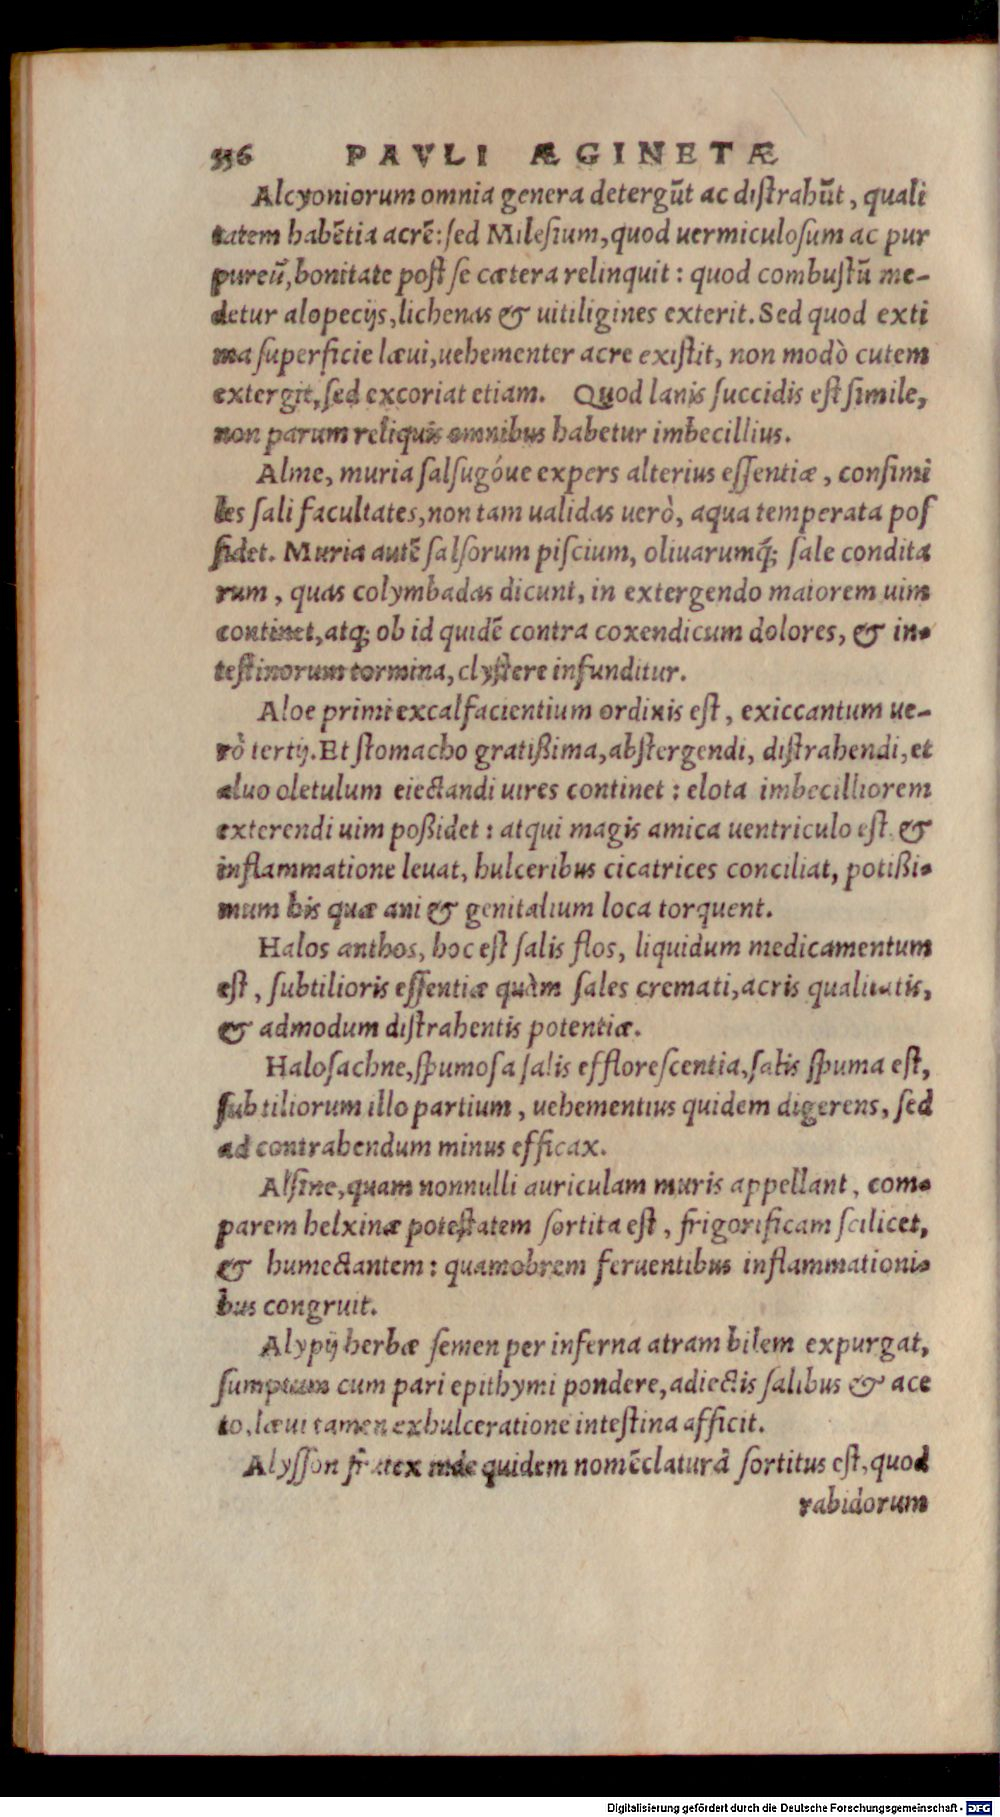 336 PAVLI ÆGINETÆ
Alcyoniorum omnia genera detergūt ac distrahūt, quali
tatem habētia acrē: sed Milesium, quod uermiculosum ac pur
pureū, bonitate post se cætera relinquit: quod combustū me-
detur alopecijs, lichenas & uitiligines exterit. Sed quod exti
ma superficie læui, uehementer acre existit, non modò cutem
extergit, sed excoriat etiam. Quod lanis succidis est simile,
non parum reliquis omnibus habetur imbecillius.
Alme, muria salsugóue expers alterius essentiæ, consimi
les sali facultates, non tam ualidas uerò, aqua temperata pos
sidet. Muria autē salsorum piscium, oliuarumq́; sale condita
rum, quas colymbadas dicunt, in extergendo maiorem uim
continet, atq; ob id quidē contra coxendicum dolores, & in-
testinorum tormina, clystere infunditur.
Aloe primi excalfacientium ordinis est, exiccantum ue-
rò tertij. Et stomacho gratißima, abstergendi, distrahendi, et
aluo oletulum eiectandi uires continet: elota imbecilliorem
exterendi uim poßidet: atqui magis amica uentriculo est &
inflammatione leuat, hulceribus cicatrices conciliat, potißi-
mum his quæ ani & genitalium loca torquent.
Halos anthos, hoc est salis flos, liquidum medicamentum
est, subtilioris essentiæ quàm sales cremati, acris qualitatis,
& admodum distrahentis potentiæ.
Halosachne, spumosa salis efflorescentia, salis spuma est,
subtiliorum illo partium, uehementius quidem digerens, sed
ad contrahendum minus efficax.
Alsine, quam nonnulli auriculam muris appellant, com-
parem helxinæ potestatem sortita est, frigorificam scilicet,
& humectantem: quamobrem feruentibus inflammationi-
bus congruit.
Alypij herbæ semen per inferna atram bilem expurgat,
sumptum cum pari epithymi pondere, adiectis salibus & ace
to, læui tamen exhulceratione intestina afficit.
Alysson frutex inde quidem nomēclaturā sortitus est, quod
rabidorum
Digitalisierung gefördert durch die Deutsche Forschungsgemeinschaft - DFG